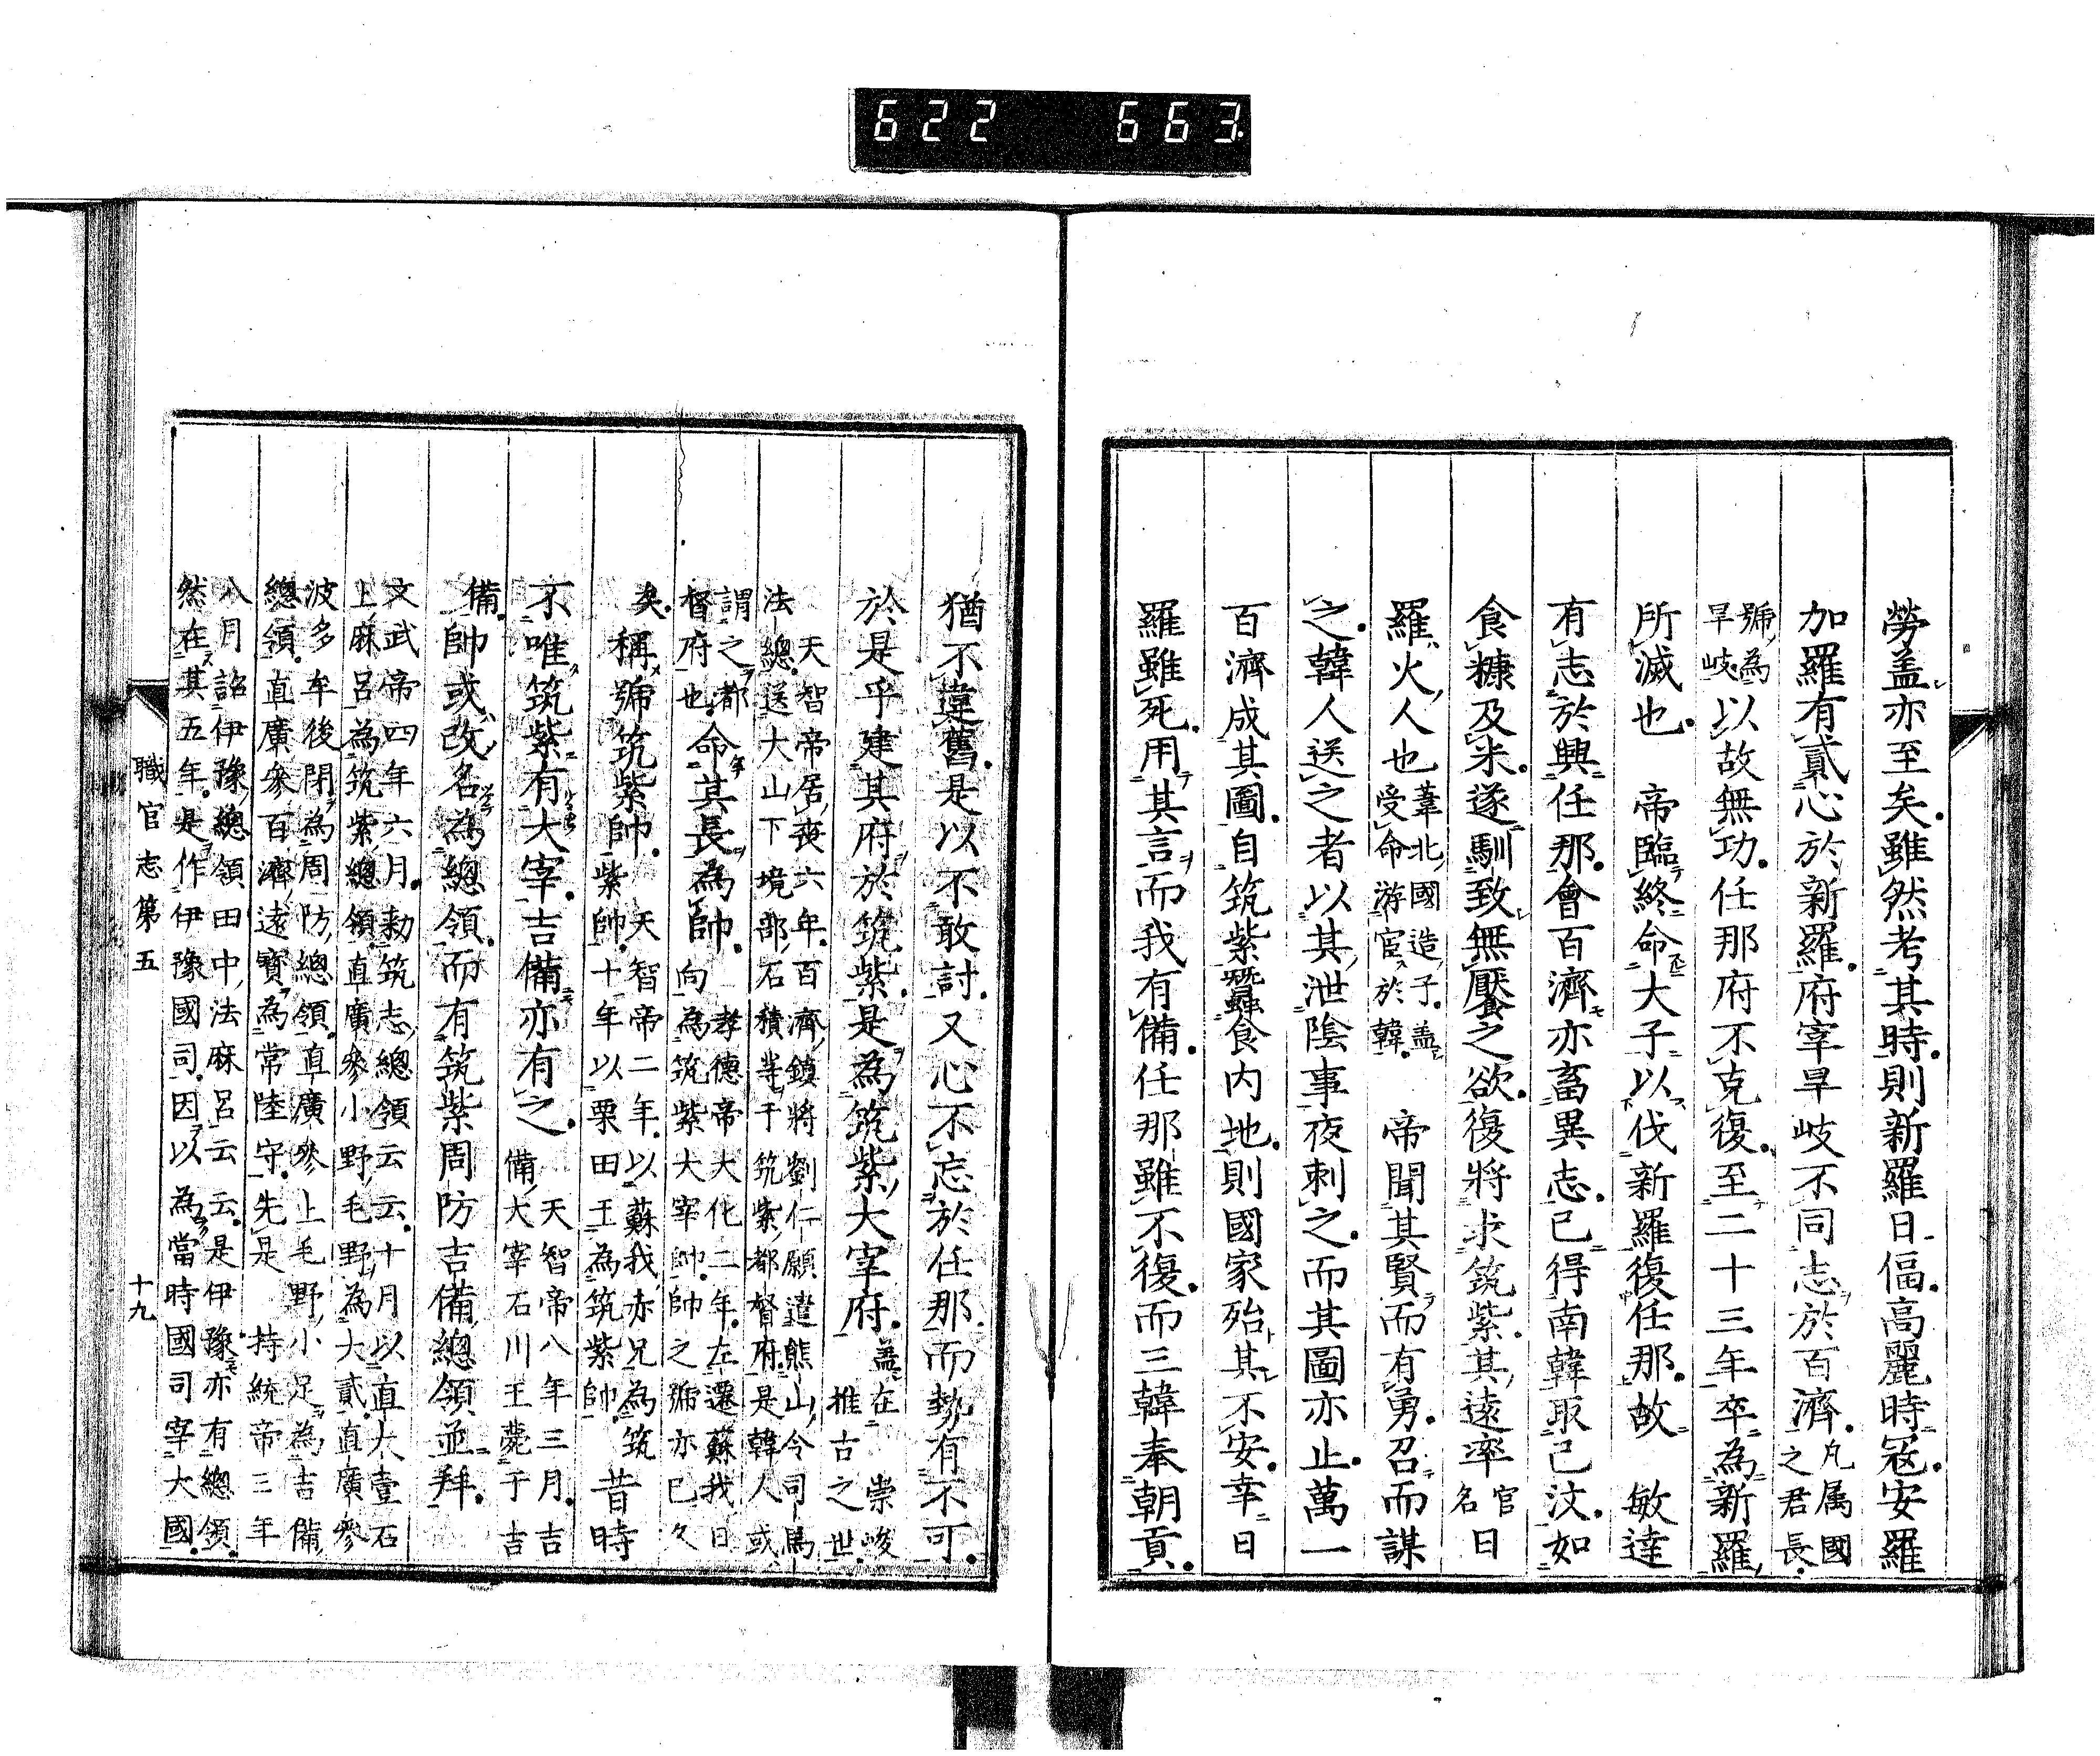 622 663
勞盖亦至矣雖然考其時則新羅日偪高麗時冦安羅
加羅有貳心於新羅府宰旱岐不同志於百濟凡属國
之君長
號為
旱岐以故無功任那府不克復至二十三年卒為新羅
所滅也 帝臨終命大子以伐新羅復任那故 敏達
有志於興任那會百濟亦畜異志已得南韓取己汶如
食糠及米遂馴致無饜之欲復將求筑紫其逺率官
名日
羅火人也葦北國造子盖
受命游宦於韓 帝聞其賢而有勇召而謀
之韓人送之者以其泄陰事夜刺之而其圖亦止萬一
百濟成其圖自筑紫蠶食内地則國家殆其不安幸日
羅雖死用其言而我有備任那雖不復而三韓奉朝貢
猶不違舊是以不敢討又心不忘於任那而勢有不可
於是乎建其府於筑紫是為筑紫大宰府盖在 崇峻
推古之世
天智帝居喪六年百濟鎮將劉仁願遣熊山令司馬
法總送大山下境部石積等于筑紫都督府是韓人或
謂之都
督府也命其長為帥孝德帝大化二年左遷蘇我日
向為筑紫大宰帥帥之號亦已久
矣稱號筑紫帥天智帝二年以蘇我赤兄為筑
紫帥十年以栗田王為筑紫帥昔時
不唯筑紫有大宰吉備亦有之天智帝八年三月吉
備大宰石川王薨于吉
備帥或改名為總領而有筑紫周防吉備總領並拜
文武帝四年六月勑筑志總領云云十月以直大壹石
上麻呂為筑紫總領直廣參小野毛野為大貳直廣參
波多牟後閇為周防總領直廣參上毛野小足為吉備
總領直廣參百濟逺寳為常陸守先是 持統帝三年
八月詔伊豫總領田中法麻呂云云是伊豫亦有總領
然在其五年是作伊豫國司因以為當時國司宰大國
職官志第五 十九